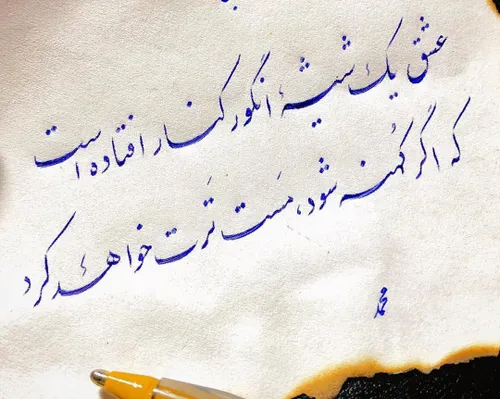 عشق یک شیشهٔ انگور کنار افتاده است
که اگر کُهنه شود، مَست تَرت خواهد کرد
محمد